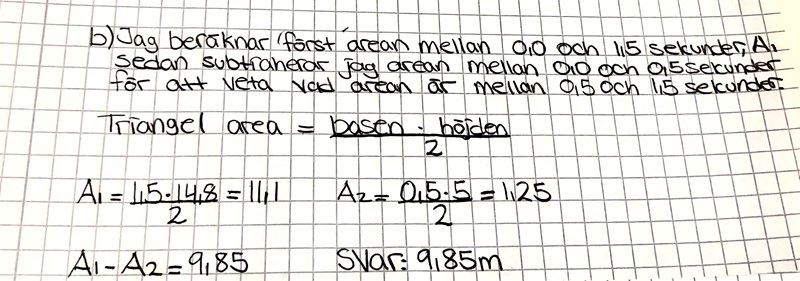 b) Jag beräknar först arean mellan 0,0 och 1,5 sekunder, A₁
sedan subtraherar jag arean mellan 0,0 och 0,5 sekunder
för att veta vad arean är mellan 0,5 och 1,5 sekunder.
Triangel area = basen · höjden / 2
A₁ = 1,5 · 14,8 / 2 = 11,1 A₂ = 0,5 · 5 / 2 = 1,25
A₁ - A₂ = 9,85 Svar: 9,85m